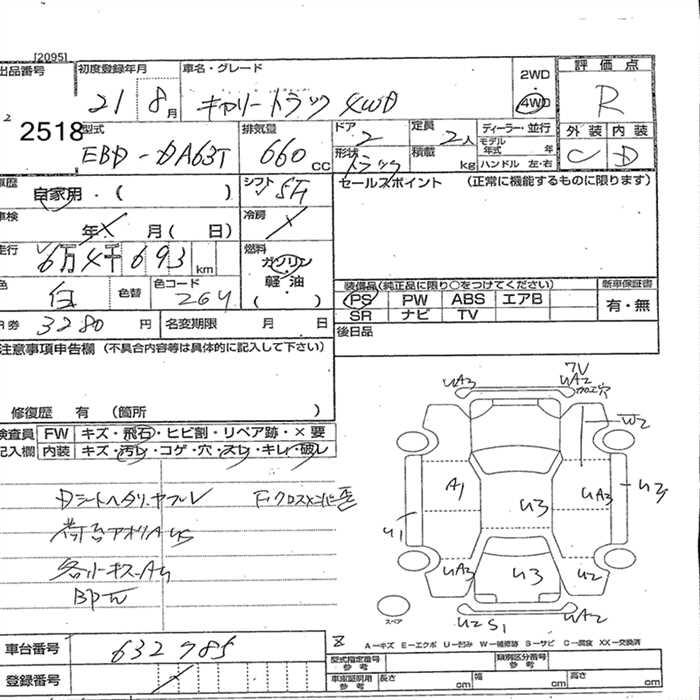 [2095]
出品番号 初度登録年月 車名・グレード 2WD 評価点
21 8月 キャリートラック 4WD 4WD R
2518 外装 内装
型式 排気量 ドア 定員 ディーラー・並行 C D
EBD-DA63T 660 CC 2 2人 モデル年式 年
形状 トラック 積載 kg ハンドル 左・右
車歴 自家用・( ) シフト 5F セールスポイント (正常に機能するものに限ります)
車検 年 月( 日) 冷房
走行 6万4千693 km 燃料 ガソリン
軽油
色 白 色替 色コード 26U ( )
装備品(純正品に限り○をつけてください) 新車保証書
PS PW ABS エアB 有・無
SR ナビ TV
R券 3280 円 名変期限 月 日
後日品
注意事項申告欄 (不具合内容等は具体的に記入して下さい)
修復歴 有 (箇所 )
検査員 FW キズ・飛石・ヒビ割・リペア跡・×要
記入欄 内装 キズ・汚レ・コゲ・穴・スレ・キレ・破レ
UA3 7V
UA2
加工穴
W2
A1 U3 UA3 U3
U1
UA3 U3 U2
U2 S1 UA2
スペア
DシートヘタリヤブレV
荷台アオリAUS
BPW
A-キズ E-エクボ U-凹み W-補修跡 S-サビ C-腐食 XX-交換済
車台番号 632785
登録番号
型式指定番号 参考 類別区分番号 参考
車庫証明用 参考 長さ cm 幅 cm 高さ cm